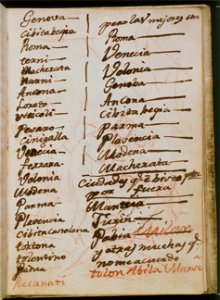 Genova
Cibita begia
Roma
terni
Macherata
Narni
Ancona
Loreto
Pesaro
Cinigalla
Venecia
Ferrara
Volonia
Modena
Parma
Plasencia
Cibita
tortona
tolentino
Padua
Recanati
pero las mejores son
Roma
Venecia
Volonia
Genoba
Ancona
Cibita begia
Parma
Plasencia
Modena
Macherata
Ciudades q.
por fuera
Mantua
Turin
Pabia Milan
y otras muchas q.
no me acuerdo